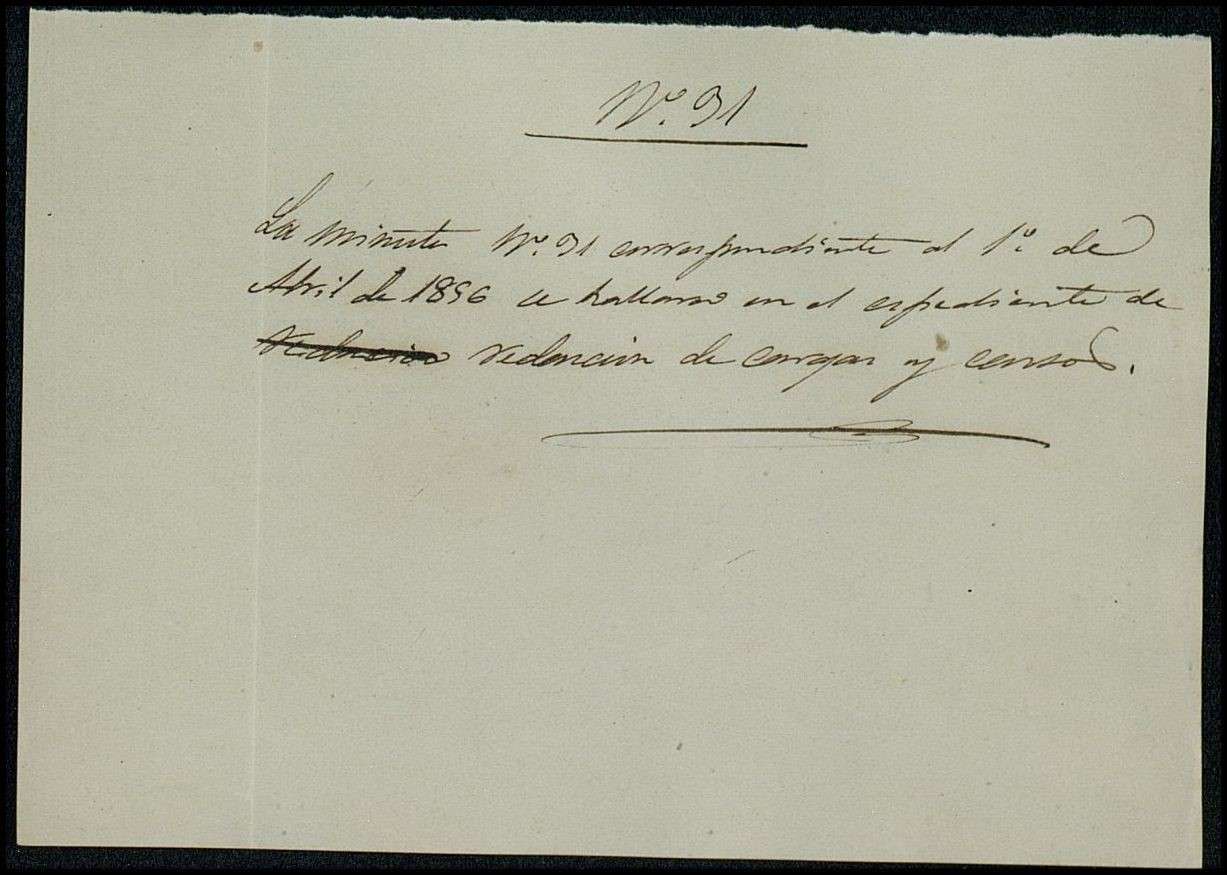 Nº. 31
La minuta Nº. 31 correspondiente al 1º. de
Abril de 1856 se hallara en el espediente de
redencion de cargas y censos.